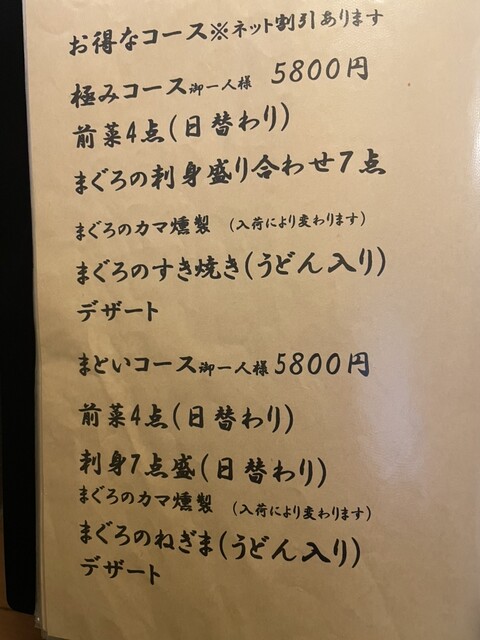 お得なコース※ネット割引あります
極みコース御一人様 5800円
前菜4点(日替わり)
まぐろの刺身盛り合わせ7点
まぐろのカマ燻製 (入荷により変わります)
まぐろのすき焼き(うどん入り)
デザート
まといコース御一人様5800円
前菜4点(日替わり)
刺身7点盛(日替わり)
まぐろのカマ燻製 (入荷により変わります)
まぐろのねぎま(うどん入り)
デザート